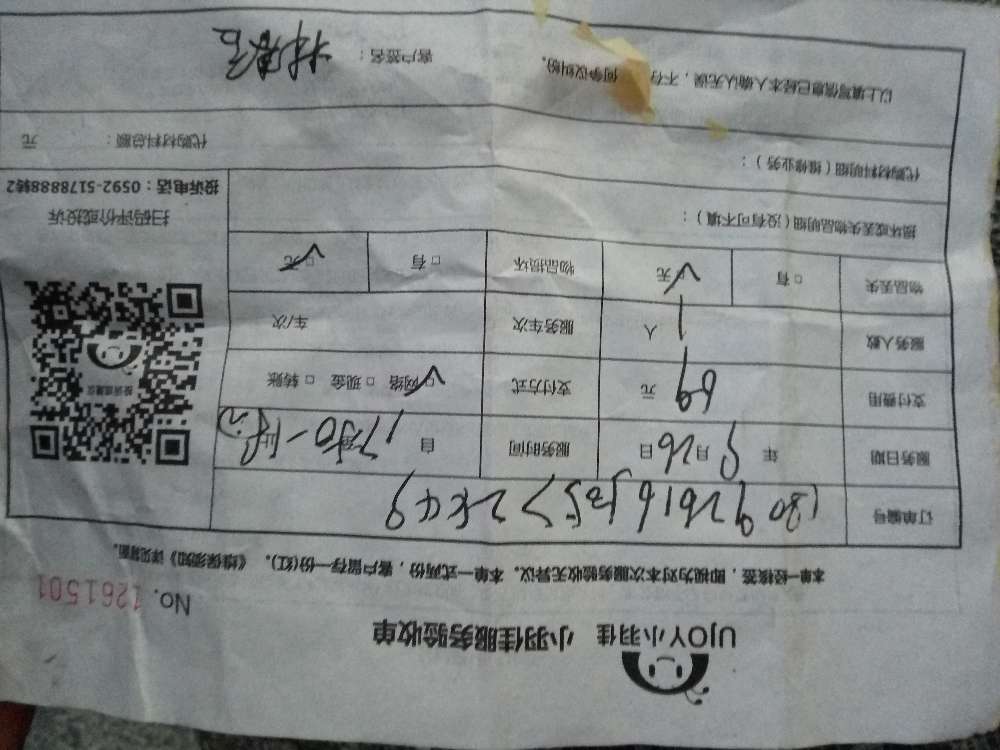 UJOY小羽佳 小羽佳服务验收单
No. 1261501
本单一经核签，即视为对本次服务验收无异议。本单一式两份，客户留存一份(红)。《维保须知》详见背面。
订单编号
服务日期 年 9 月 26 日 服务时间 自 17:30一
支付费用 69 元 支付方式 ☑网络 □现金 □转账
服务人数 1 人 服务车次 车/次
物品丢失 □有 ☑无 物品损坏 □有 ☑无
损坏或丢失物品明细（没有可不填）：
扫码评价或投诉
投诉电话：0592-5178888转2
代购材料明细（维修业务）：
代购材料总额： 元
以上填写信息已经本人确认无误，不存 何争议纠纷。 客户签名：